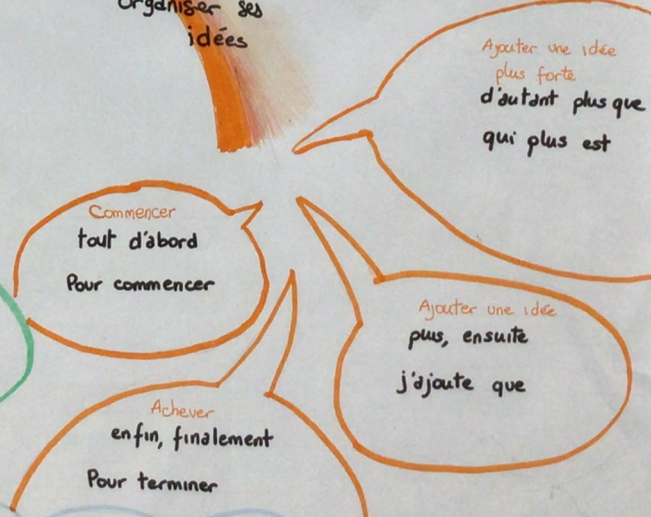 Organiser ses
idées
Ajouter une idée
plus forte
d'autant plus que
qui plus est
Commencer
tout d'abord
Pour commencer
Ajouter une idée
puis, ensuite
j'ajoute que
Achever
enfin, finalement
Pour terminer